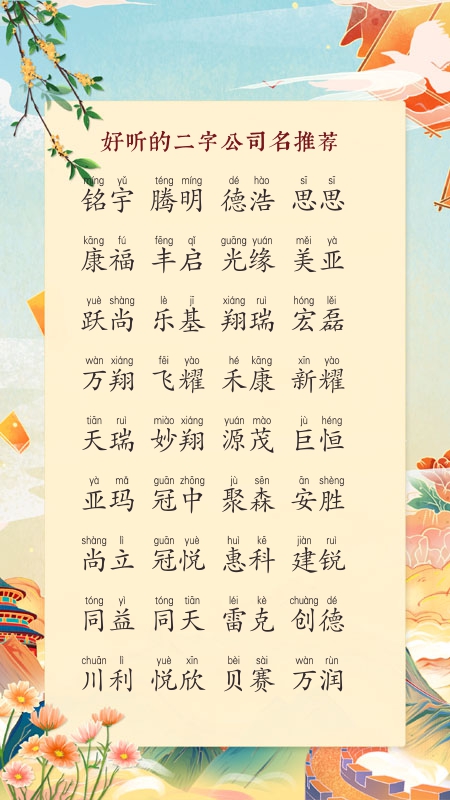 好听的二字公司名推荐
míng yǔ téng míng dé hào sī sī
铭宇 腾明 德浩 思思
kāng fú fēng qǐ guāng yuán měi yà
康福 丰启 光缘 美亚
yuè shàng lè jī xiáng ruì hóng lěi
跃尚 乐基 翔瑞 宏磊
wàn xiáng fēi yào hé kāng xīn yào
万翔 飞耀 禾康 新耀
tiān ruì miào xiáng yuán mào jù héng
天瑞 妙翔 源茂 巨恒
yà mǎ guān zhōng jù sēn ān shèng
亚玛 冠中 聚森 安胜
shàng lì guān yuè huì kē jiàn ruì
尚立 冠悦 惠科 建锐
tóng yì tóng tiān léi kè chuàng dé
同益 同天 雷克 创德
chuān lì yuè xīn bèi sài wàn rùn
川利 悦欣 贝赛 万润